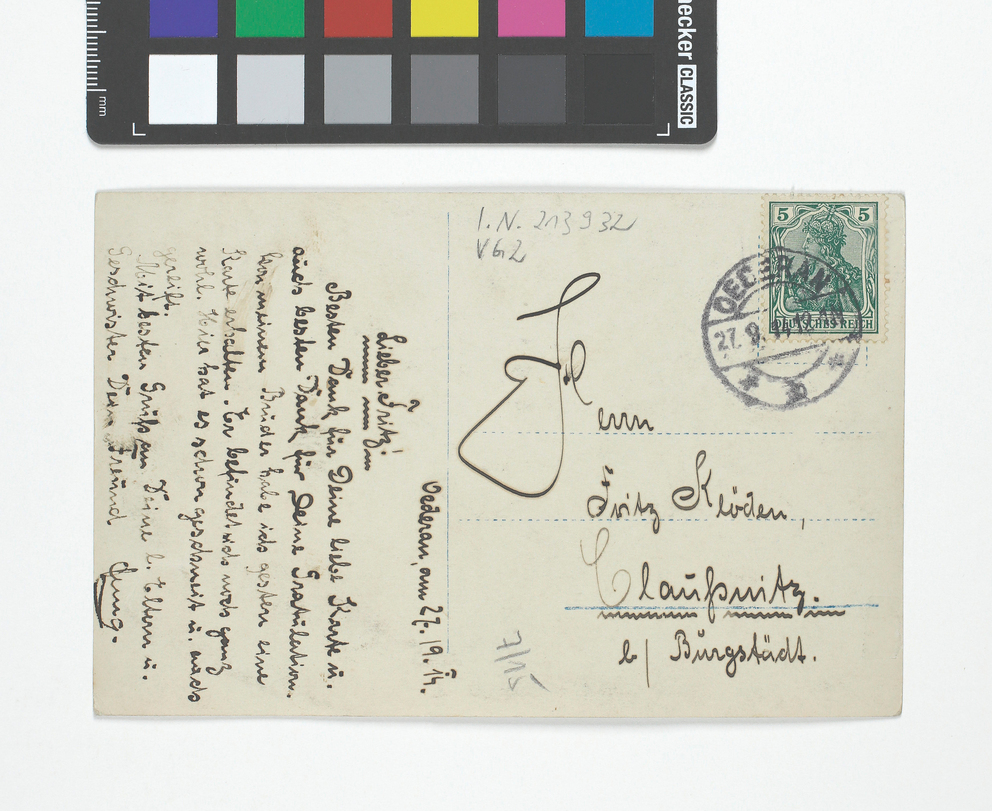 aecker
CLASSIC
mm
I. N. 213932
V 6.2
5 5
DEUTSCHES REICH
OEDERAN
27. 9. 14. 12
* b
Herrn
Fritz Klöden,
Claußnitz.
b/ Burgstädt.
7/15
Oederan, am 27. 9. 14.
Lieber Fritz!
Besten Dank für Deine liebe Karte u.
auch besten Dank für Deine Gratulation.
Von meinem Bruder habe ich gestern eine
Karte erhalten. Er befindet sich noch ganz
wohl. Hier hat es schon geschneit u. auch
gereift.
Mit besten Grüßen Deine l. Eltern u.
Geschwister Dein Freund